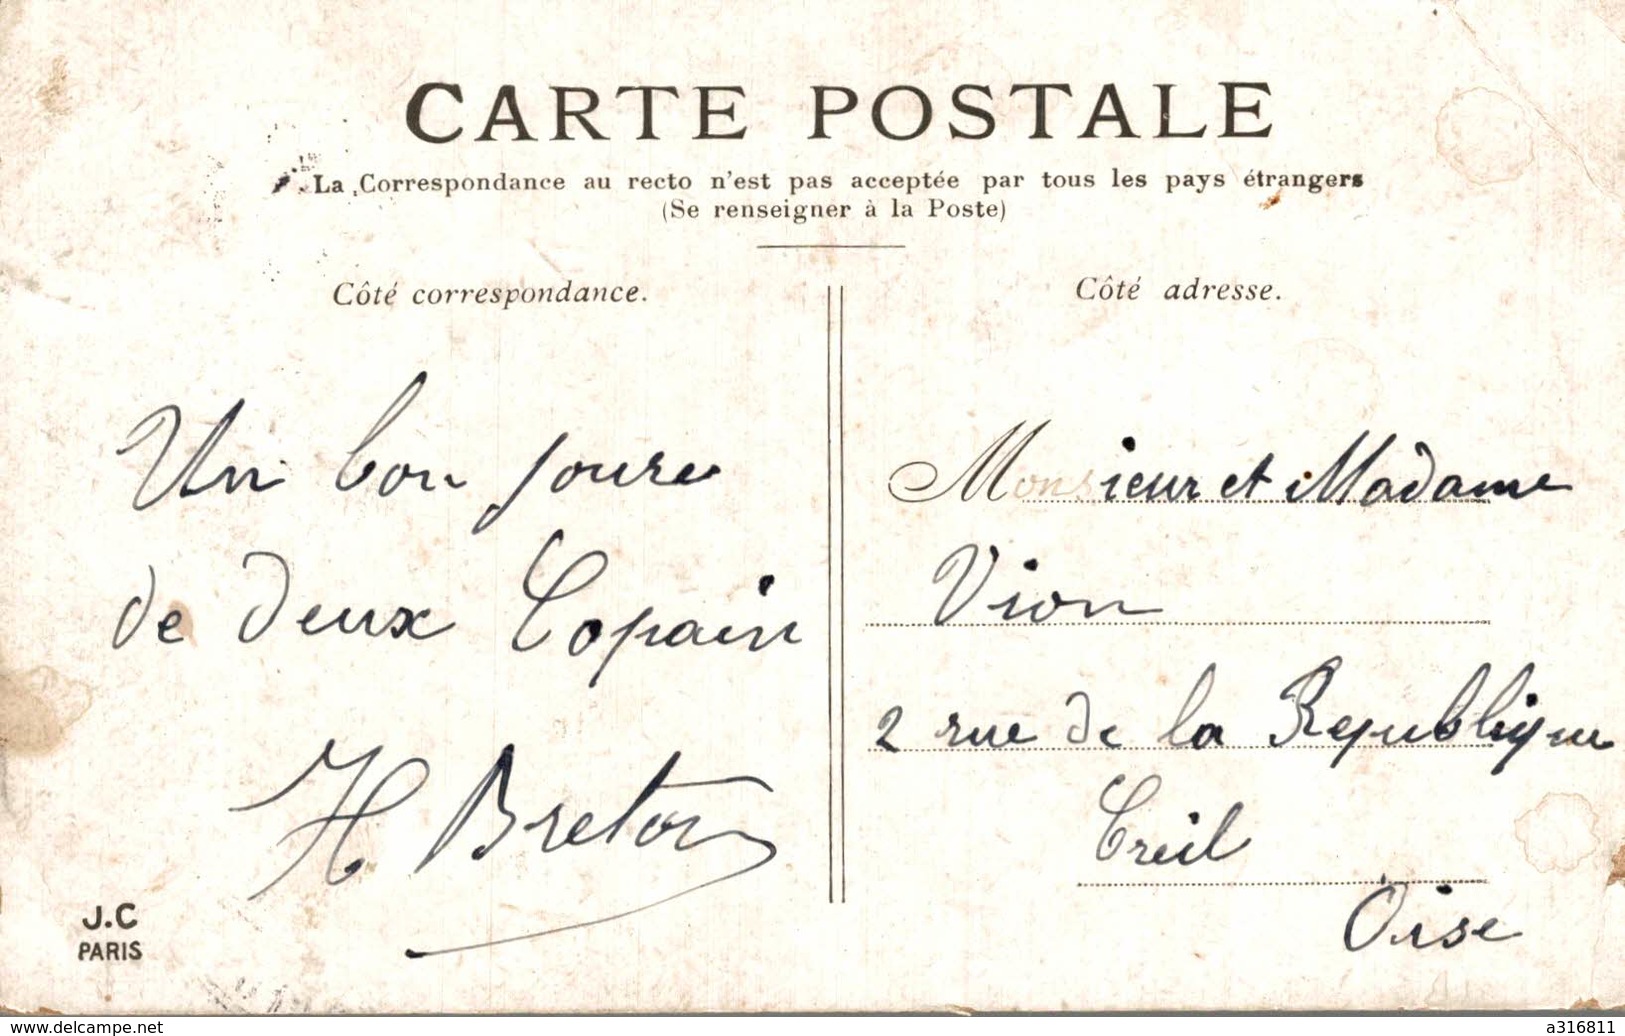 CARTE POSTALE
La Correspondance au recto n'est pas acceptée par tous les pays étrangers
(Se renseigner à la Poste)
Côté correspondance.
Un bon joure
de deux Copain
H Breton
J.C
PARIS
Côté adresse.
Monsieur et Madame
Vion
2 rue de la Republique
Creil
Oise
www.delcampe.net
a316811